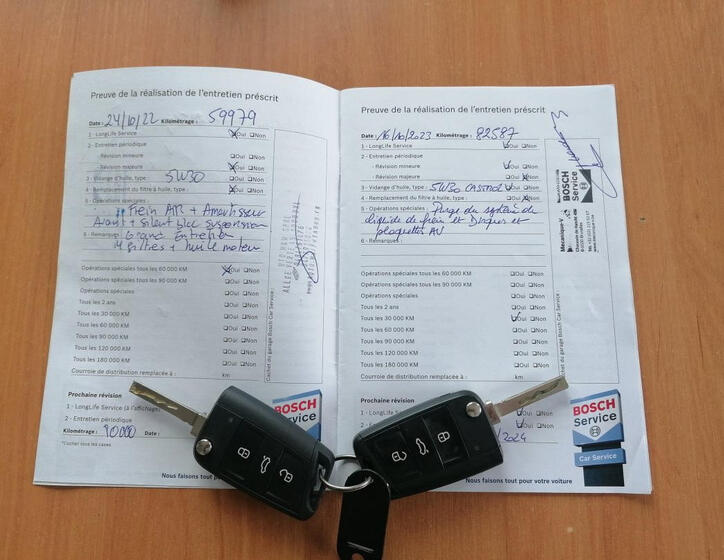 Preuve de la réalisation de l'entretien préscrit
Date : 24/10/22 Kilométrage : 59979
1 - LongLife Service Oui Non
2 - Entretien périodique
- Révision mineure Oui Non
- Révision majeure Oui Non
3 - Vidange d'huile, type : 5W30 Oui Non
4 - Remplacement du filtre à huile, type : Oui Non
5 - Opérations spéciales :
Frein AR + Amortisseur
Avant + Silent bloc suspension
6 - Remarques : Grand Entretien
4 filtres + huile moteur
Opérations spéciales tous les 60 000 KM Oui Non
Opérations spéciales tous les 90 000 KM Oui Non
Opérations spéciales Oui Non
Tous les 2 ans Oui Non
Tous les 30 000 KM Oui Non
Tous les 60 000 KM Oui Non
Tous les 90 000 KM Oui Non
Tous les 120 000 KM Oui Non
Tous les 180 000 KM Oui Non
Courroie de distribution remplacée à : km
Cachet du garage Bosch Car Service :
Prochaine révision
1 - LongLife Service (à l'affichage)
2 - Entretien périodique
Kilométrage : 90000 Date :
*Cocher tous les cases
BOSCH
Service
Nous faisons tout
Preuve de la réalisation de l'entretien préscrit
Date : 16/10/2023 Kilométrage : 82587
1 - LongLife Service Oui Non
2 - Entretien périodique
- Révision mineure Oui Non
- Révision majeure Oui Non
3 - Vidange d'huile, type : 5W30 CASTROL Oui Non
4 - Remplacement du filtre à huile, type : Oui Non
5 - Opérations spéciales : Purge du système de
liquide de frein et Disques et
plaquettes AV
6 - Remarques :
Opérations spéciales tous les 60 000 KM Oui Non
Opérations spéciales tous les 90 000 KM Oui Non
Opérations spéciales Oui Non
Tous les 2 ans Oui Non
Tous les 30 000 KM Oui Non
Tous les 60 000 KM Oui Non
Tous les 90 000 KM Oui Non
Tous les 120 000 KM Oui Non
Tous les 180 000 KM Oui Non
Courroie de distribution remplacée à : km
Cachet du garage Bosch Car Service :
BOSCH
Service
Mecanique-V
Prochaine révision
1 - LongLife Oui Non
2 - Entretien Oui Non
/2024
BOSCH
Service
Car Service
Nous faisons tout pour votre voiture